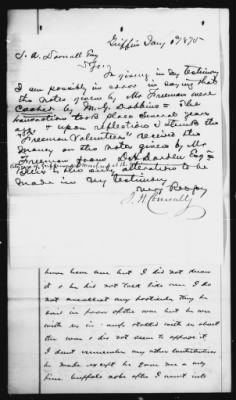 Griffin Jany 9th 1875
J. A. Darnall Esq
D Sir
In giving in my testimony
I am possibly in error in saying that
the notes given by Mr Freeman were
Cashed by M. G. Dobbins
transactions took place several years
ago & upon reflection I think the
"Freeman Volunteers" received the
money on the notes given by Mr
Freeman from
This is the only alteration to be
made in my testimony
Very Resply
been here but I did not
it & he did not talk like
not recollect any particular thing he
said in favor of the war but he was
with us in & talked with us about
the war & did not seem to oppose it.
I dont remember any other contributions
he made except he gave me a very
fine buffalo robe after I went into